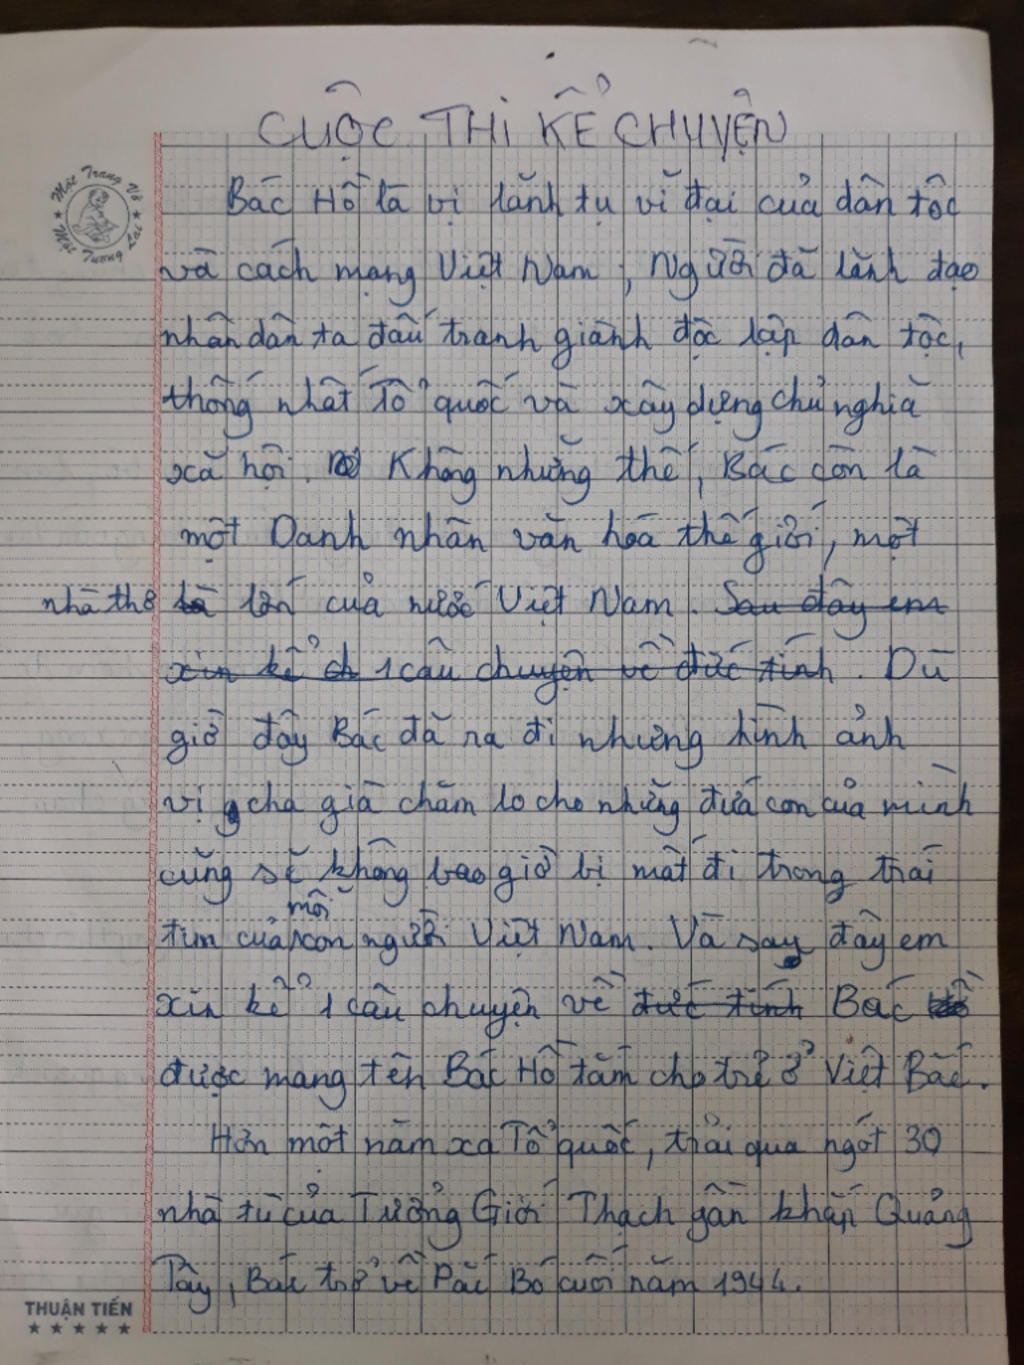 CUỘC THI KỂ CHUYỆN
Một Trang Vở
Một Tương Lai
Bác Hồ là vị lãnh tụ vĩ đại của dân tộc
và cách mạng Việt Nam, Người đã lãnh đạo
nhân dân ta đấu tranh giành độc lập dân tộc,
thống nhất Tổ quốc và xây dựng chủ nghĩa
xã hội. Không những thế, Bác còn là
một Danh nhân văn hóa thế giới, một
nhà thơ là lớn của nước Việt Nam. Sau đây em
xin kể ch 1 câu chuyện về đức tính. Dù
giờ đây Bác đã ra đi nhưng hình ảnh
vị cha già chăm lo cho những đứa con của mình
cũng sẽ không bao giờ bị mất đi trong trái
tim của mỗi con người Việt Nam. Và say đây em
xin kể 1 câu chuyện về đức tính Bác
được mang tên Bác Hồ tắm cho trẻ ở Việt Bắc.
Hơn một năm xa Tổ quốc, trải qua ngót 30
nhà tù của Tưởng Giới Thạch gần khắp Quảng
Tây, Bác trở về Pác Bó cuối năm 1944.
THUẬN TIẾN